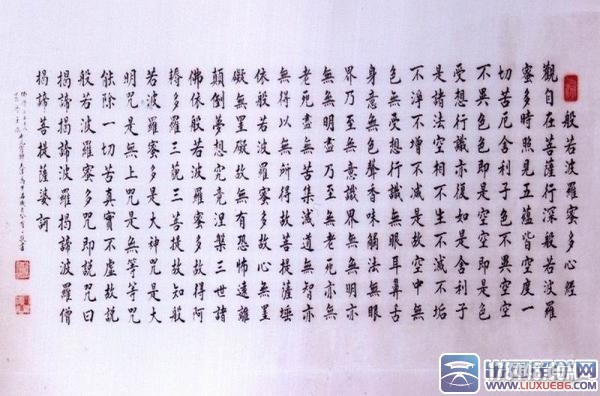 般若波羅蜜多心經
觀自在菩薩行深般若波羅
蜜多時照見五蘊皆空度一
切苦厄舍利子色不異空空
不異色色即是空空即是色
受想行識亦復如是舍利子
是諸法空相不生不滅不垢
不淨不增不減是故空中無
色無受想行識無眼耳鼻舌
身意無色聲香味觸法無眼
界乃至無意識界無無明亦
無無明盡乃至無老死亦無
老死盡無苦集滅道無智亦
無得以無所得故菩提薩埵
依般若波羅蜜多故心無罣
礙無罣礙故無有恐怖遠離
顛倒夢想究竟涅槃三世諸
佛依般若波羅蜜多故得阿
耨多羅三藐三菩提故知般
若波羅蜜多是大神咒是大
明咒是無上咒是無等等咒
能除一切苦真實不虛故說
般若波羅蜜多咒即說咒曰
揭諦揭諦波羅揭諦波羅僧
揭諦菩提薩婆訶
WWW.LIUXUE86.COM